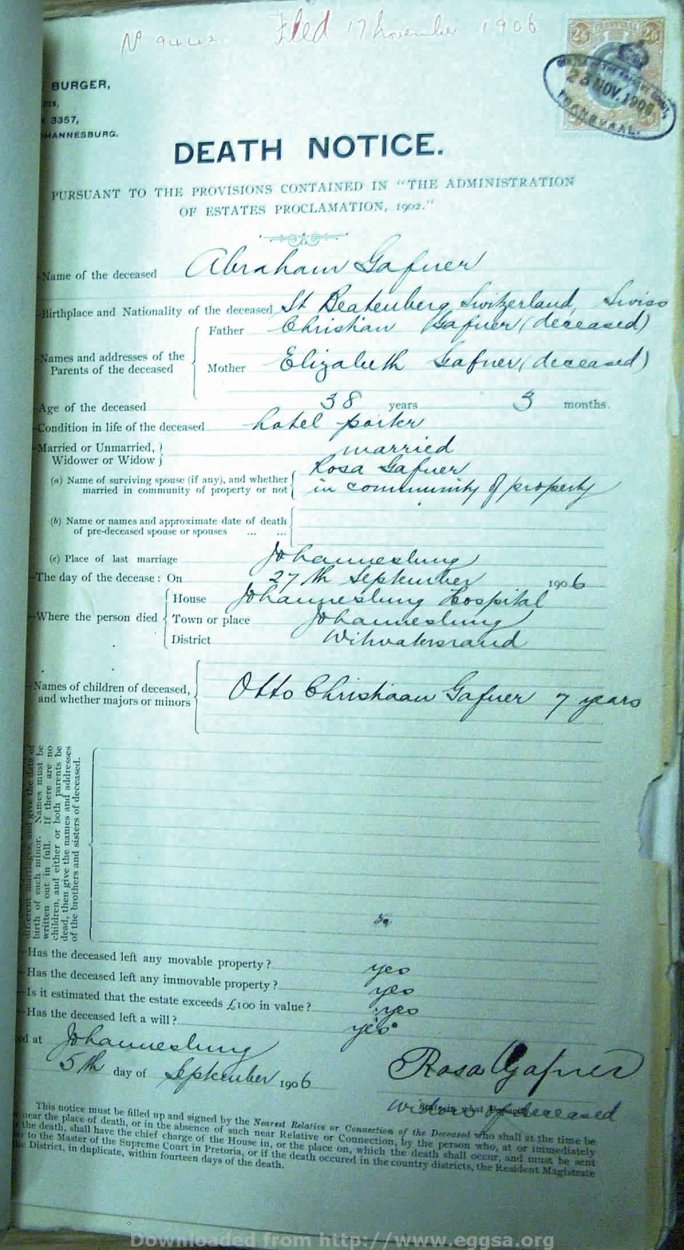 No 9442 Filed 17 November 1906
BURGER,
3357,
HANNESBURG.
2/6 TRANSVAAL 2/6
23 NOV. 1906
TRANSVAAL.
DEATH NOTICE.
PURSUANT TO THE PROVISIONS CONTAINED IN "THE ADMINISTRATION
OF ESTATES PROCLAMATION, 1902."
Name of the deceased Abraham Gafner
Birthplace and Nationality of the deceased St Beatenberg Switzerland, Swiss
Names and addresses of the Parents of the deceased
Father Christian Gafner (deceased)
Mother Elizabeth Gafner (deceased)
Age of the deceased 38 years 3 months.
Condition in life of the deceased hotel porter
Married or Unmarried, Widower or Widow married
(a) Name of surviving spouse (if any), and whether Rosa Gafner
married in community of property or not in community of property
(b) Name or names and approximate date of death
of pre-deceased spouse or spouses ... ...
(c) Place of last marriage Johannesburg
The day of the decease: On 27th September 1906
Where the person died
House Johannesburg Hospital
Town or place Johannesburg
District Witwatersrand
Names of children of deceased,
and whether majors or minors Otto Christiaan Gafner 7 years
different marriages, and give the date of
birth of each minor. Names must be
written out in full. If there are no
children, and either or both parents be
dead, then give the names and addresses
of the brothers and sisters of deceased.
Has the deceased left any movable property? yes
Has the deceased left any immovable property? yes
Is it estimated that the estate exceeds £100 in value? yes
Has the deceased left a will? yes
ed at Johannesburg
5th day of September 1906 Rosa Gafner
widow of deceased
This notice must be filled up and signed by the Nearest Relative or Connection of the Deceased who shall at the time be
near the place of death, or in the absence of such near Relative or Connection, by the person who, at or immediately
the death, shall have the chief charge of the House in, or the place on, which the death shall occur, and must be sent
er to the Master of the Supreme Court in Pretoria, or if the death occured in the country districts, the Resident Magistrate
District, in duplicate, within fourteen days of the death.
Downloaded from http://www.eggsa.org